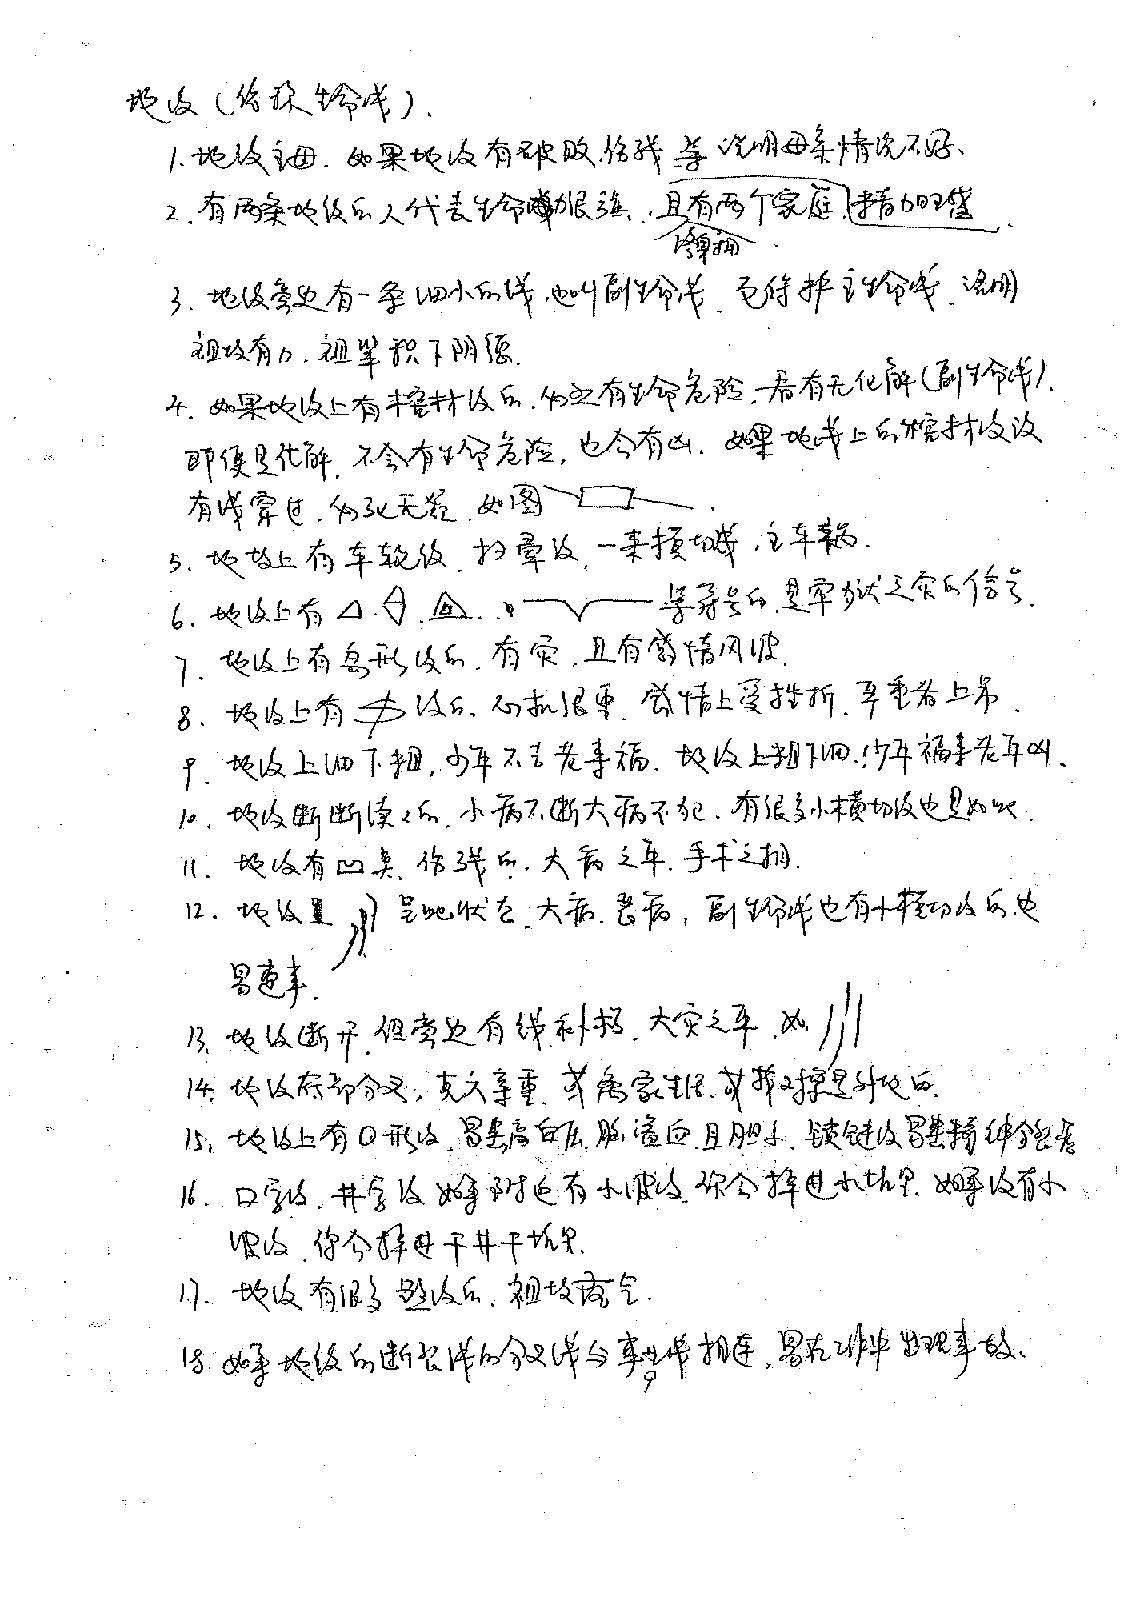 地纹（俗称生命线）.
1. 地纹主母. 如果地纹有破败. 伤残等说明母亲情况不好、
2. 有两条地纹的人代表生命力很强. 且有两个家庭 精力旺盛
3. 地纹旁边有一条细小的线. 也叫副生命线. 它保护主生命线. 说明
祖坟有力. 祖辈积下阴德.
4. 如果地纹上有棺材纹的. 必定有生命危险. 看有无化解（副生命线）.
即使是化解. 不会有生命危险. 也会有凶. 如果地线上的棺材纹没
有线穿过. 必死无疑. 如图
5. 地纹上有车轮纹. 一条横切线. 主车祸.
6. 地纹上有 等符号的. 是牢狱之灾的信号.
7. 地纹上有岛形纹的. 有灾. 且有感情风波.
8. 地纹上有 纹的. 心机很重. 感情上受挫折. 严重者上吊.
9. 地纹上细下粗. 少年不吉老来福. 地纹上粗下细. 少年福来老年凶、
10. 地纹断断续续的. 小病不断大病不犯. 有很多小横切纹也是如此.
11. 地纹有凹臭. 伤残的. 大病之年. 手术之相.
12. 地纹呈 是此状态. 大病. 恶病, 副生命线也有小横切纹的. 也
易遭事.
13. 地纹断开. 但旁边有线补救. 大灾之年. 如
14. 地纹底部分叉. 克父亲重. 或离家生活. 或找对象是外地的.
15. 地纹上有口形纹. 易患高血压. 脑溢血. 且胆小. 锁链纹易患精神分裂者
16. 口字纹. 井字纹 如果附近有小波纹. 你会掉进水坑里. 如果没有小
波纹. 你会掉进干井干坑里.
17. 地纹有很多 纹的. 祖坟落空.
18. 如果地纹的断裂线的分叉线与事业线相连. 易在工作中出现事故、